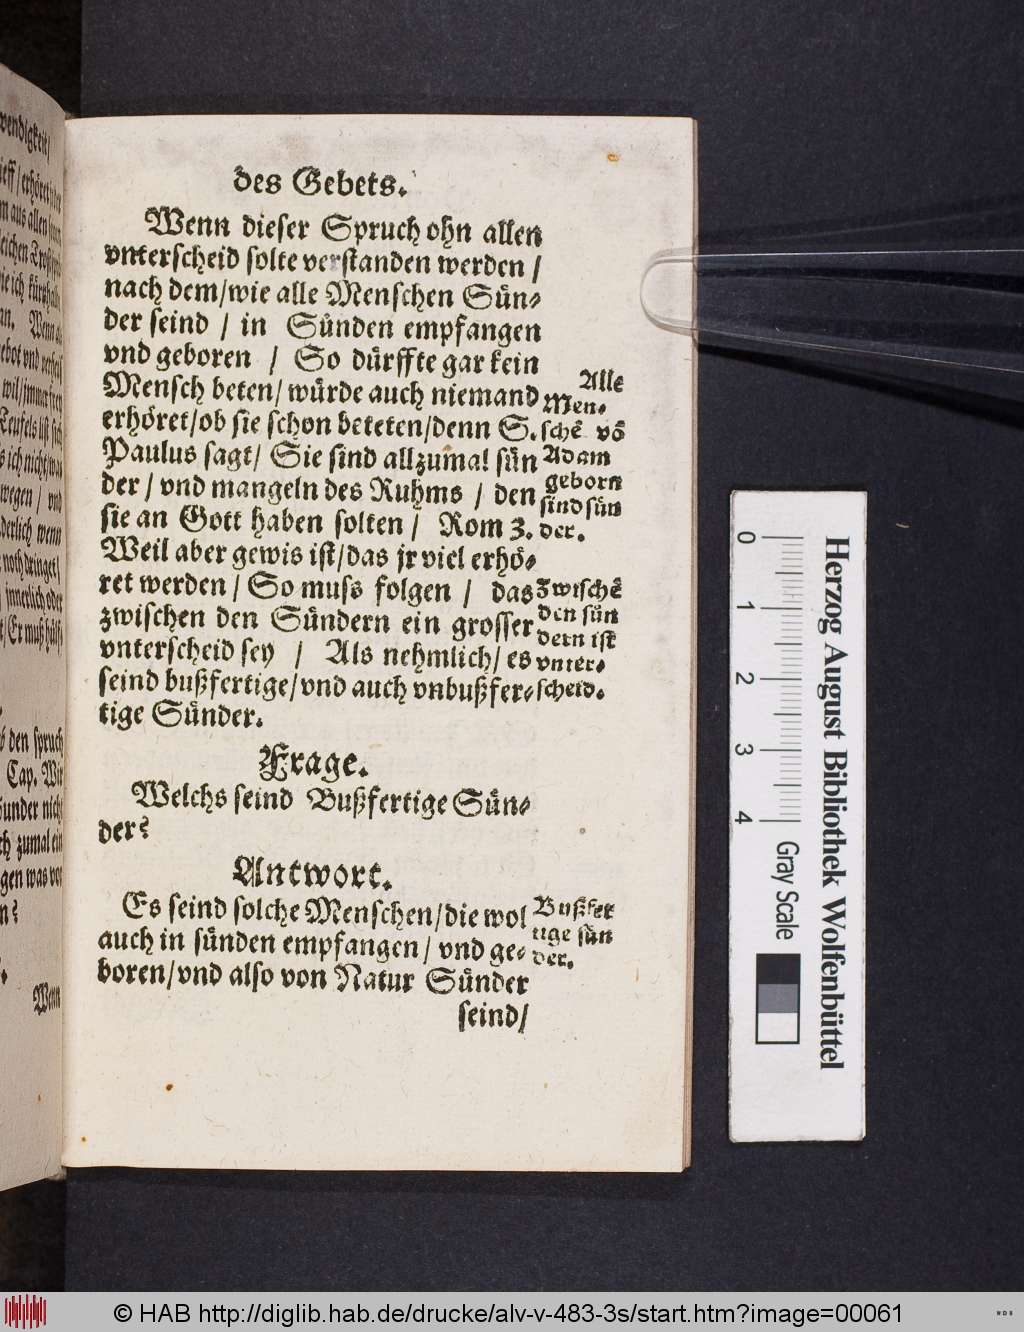 des Gebets.
Wenn dieser Spruch ohn allen
vnterscheid solte verstanden werden /
nach dem/wie alle Menschen Sün-
der seind / in Sünden empfangen
vnd geboren / So dürffte gar kein
Mensch beten/ würde auch niemand
erhöret/ob sie schon beteten/denn S.
Paulus sagt/ Sie sind allzumal sün
der / vnd mangeln des Ruhms / den
sie an Gott haben solten / Rom 3.
Weil aber gewis ist/das jr viel erhö-
ret werden / So muss folgen / das
zwischen den Sündern ein grosser
vnterscheid sey / Als nehmlich/ es
seind bußfertige/vnd auch vnbußfer-
tige Sünder.
Alle
Men-
schē vō
Adam
geborn
sind sün
der.
Zwischē
den sün
dern ist
vnter-
scheid.
Frage.
Welchs seind Bußfertige Sün-
der?
Antwort.
Es seind solche Menschen/die wol
auch in sünden empfangen/ vnd ge-
boren/vnd also von Natur Sünder
seind/
Bußfer
tige sün
der.
wendigkeit/
nicht/was
wegen / vnd
derlich wenn
noth dringet/
innerlich oder
den spruch
Cap. Wir
Sunder nicht
zumal ein
gen was vor
Wenn
0 1 2 3 4
Gray Scale
Herzog August Bibliothek Wolfenbüttel
© HAB http://diglib.hab.de/drucke/alv-v-483-3s/start.htm?image=00061